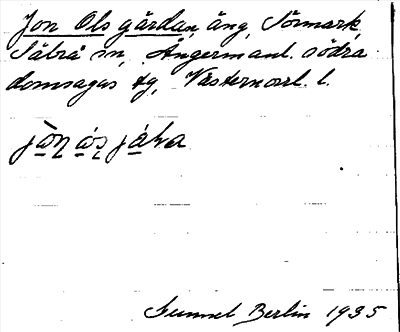 Jon Ols gårdan, äng, Sörmark,
Säbrå sn, Ångermanl. södra
domsagas tg, Västernorrl. l.
Gunnel Berlin 1935